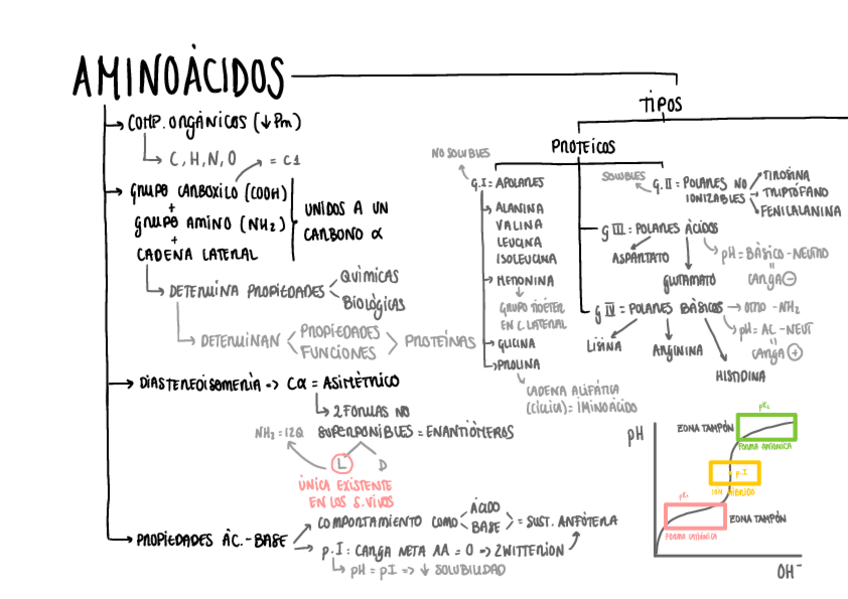 AMINOÁCIDOS
COMP. ORGÁNICOS (↓Pm)
C, H, N, O
= C1
GRUPO CARBOXILO (COOH)
+
GRUPO AMINO (NH₂)
+
CADENA LATERAL
UNIDOS A UN
CARBONO α
DETERMINA PROPIEDADES
QUÍMICAS
BIOLÓGICAS
DETERMINAN
PROPIEDADES
FUNCIONES
PROTEÍNAS
DIASTEREOISOMERÍA => Cα = ASIMÉTRICO
2 FORMAS NO
SUPERPONIBLES = ENANTIÓMEROS
NH₂ = IZQ
L
D
ÚNICA EXISTENTE
EN LOS S. VIVOS
PROPIEDADES ÁC.-BASE
COMPORTAMIENTO COMO
ÁCIDO
BASE
= SUST. ANFÓTERA
p.I : CARGA NETA AA = 0 => ZWITTERION
pH = pI => ↓ SOLUBILIDAD
TIPOS
PROTEICOS
NO SOLUBLES
g.I = APOLARES
ALANINA
VALINA
LEUCINA
ISOLEUCINA
METIONINA
GRUPO TIOÉTER
EN C. LATERAL
GLICINA
PROLINA
CADENA ALIFÁTICA
(CÍCLICA) = IMINOÁCIDO
SOLUBLES
g.II = POLARES NO
IONIZABLES
TIROSINA
TRIPTÓFANO
FENILALANINA
g III = POLARES ÁCIDOS
ASPARTATO
GLUTAMATO
pH = BÁSICO - NEUTRO
"
CARGA ⊖
g IV = POLARES BÁSICOS → OTRO -NH₂
LISINA
ARGININA
HISTIDINA
pH = AC - NEUT
"
CARGA ⊕
pH
ZONA TAMPÓN
FORMA ANIÓNICA
p.I
ION HÍBRIDO
ZONA TAMPÓN
FORMA CATIÓNICA
OH⁻